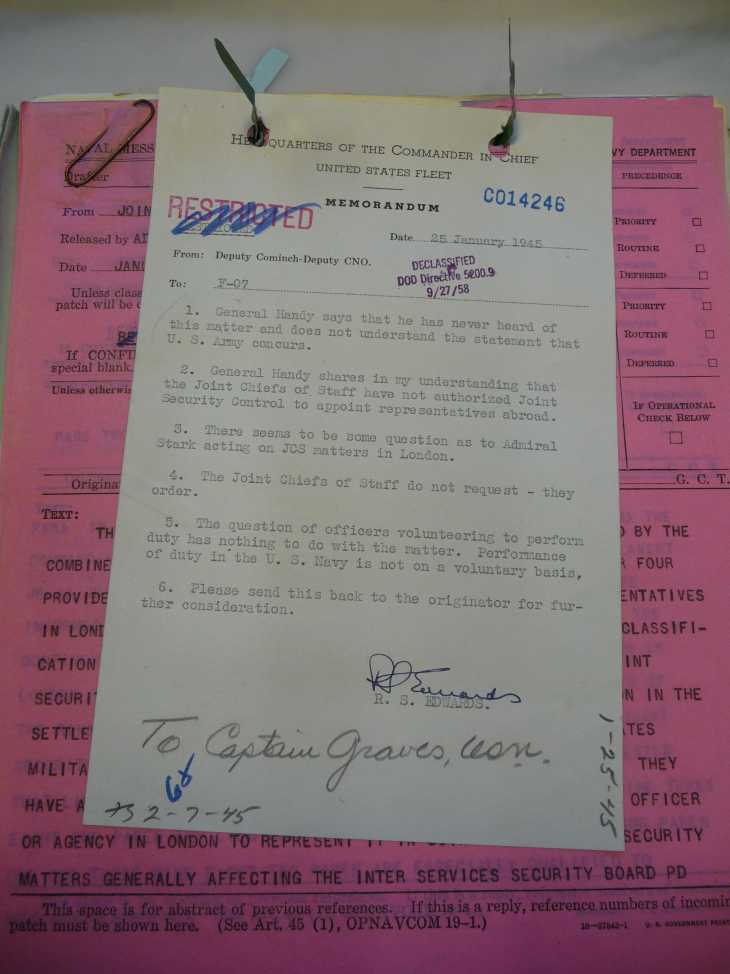 HEADQUARTERS OF THE COMMANDER IN CHIEF
UNITED STATES FLEET
MEMORANDUM
C014246
RESTRICTED
Date 25 January 1945
From: Deputy Cominch-Deputy CNO.
DECLASSIFIED
DOD Directive 5200.9
9/27/58
To: F-07
1. General Handy says that he has never heard of
this matter and does not understand the statement that
U. S. Army concurs.
2. General Handy shares in my understanding that
the Joint Chiefs of Staff have not authorized Joint
Security Control to appoint representatives abroad.
3. There seems to be some question as to Admiral
Stark acting on JCS matters in London.
4. The Joint Chiefs of Staff do not request - they
order.
5. The question of officers volunteering to perform
duty has nothing to do with the matter. Performance
of duty in the U. S. Navy is not on a voluntary basis,
6. Please send this back to the originator for fur-
ther consideration.
R S Edwards
R. S. EDWARDS.
To Captain Graves, USN.
2-7-45
1-25-45
NAVAL MESS
VY DEPARTMENT
Drafter
PRECEDENCE
From JOIN
PRIORITY
Released by
ROUTINE
Date JAN
DEFERRED
Unless class
patch will be
PRIORITY
ROUTINE
If CONFI
special blank.
DEFERRED
Unless otherwi
IF OPERATIONAL
CHECK BELOW
Origina
G. C. T.
TEXT:
TH
D BY THE
COMBINE
R FOUR
PROVIDE
ENTATIVES
IN LOND
CLASSIFI-
CATION
INT
SECURI
N IN THE
SETTLE
TES
MILITA
THEY
HAVE A
OFFICER
OR AGENCY IN LONDON TO REPRESENT IT IN
SECURITY
MATTERS GENERALLY AFFECTING THE INTER SERVICES SECURITY BOARD PD
This space is for abstract of previous references. If this is a reply, reference numbers of incomin
patch must be shown here. (See Art. 45 (1), OPNAVCOM 19-1.)
U. S. GOVERNMENT PRINT